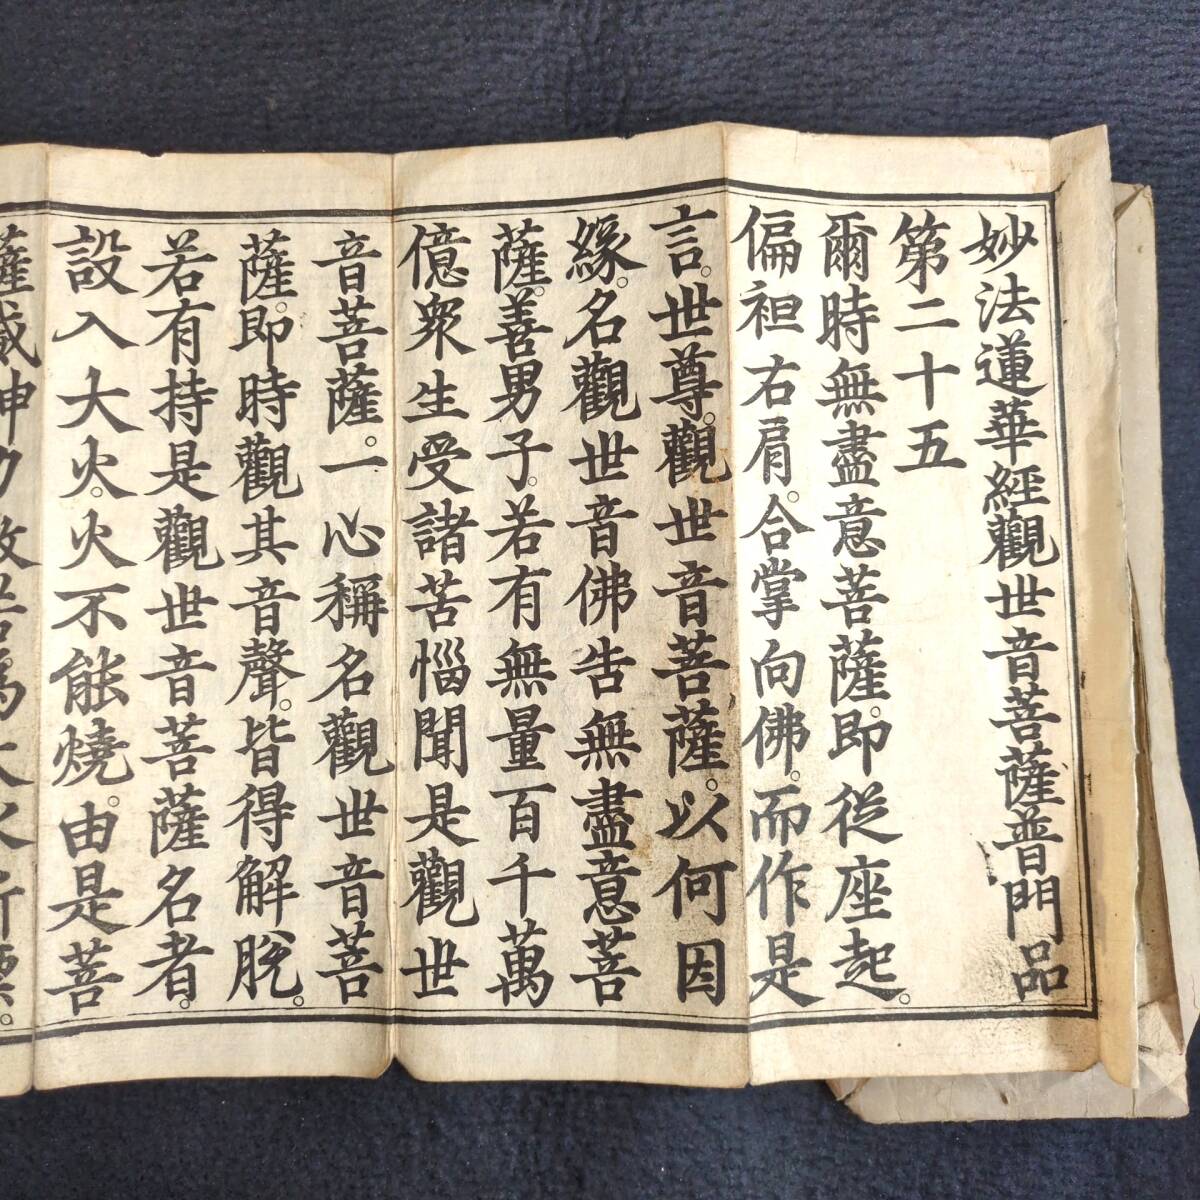 妙法蓮華經觀世音菩薩普門品
第二十五
爾時無盡意菩薩。即從座起。
偏袒右肩。合掌向佛。而作是
言。世尊。觀世音菩薩。以何因
緣。名觀世音佛告無盡意菩
薩。善男子。若有無量百千萬
億衆生受諸苦惱聞是觀世
音菩薩。一心稱名觀世音菩
薩。即時觀其音聲。皆得解脫。
若有持是觀世音菩薩名者。
設入大火。火不能燒。由是菩
薩威神力故若爲大水所漂。